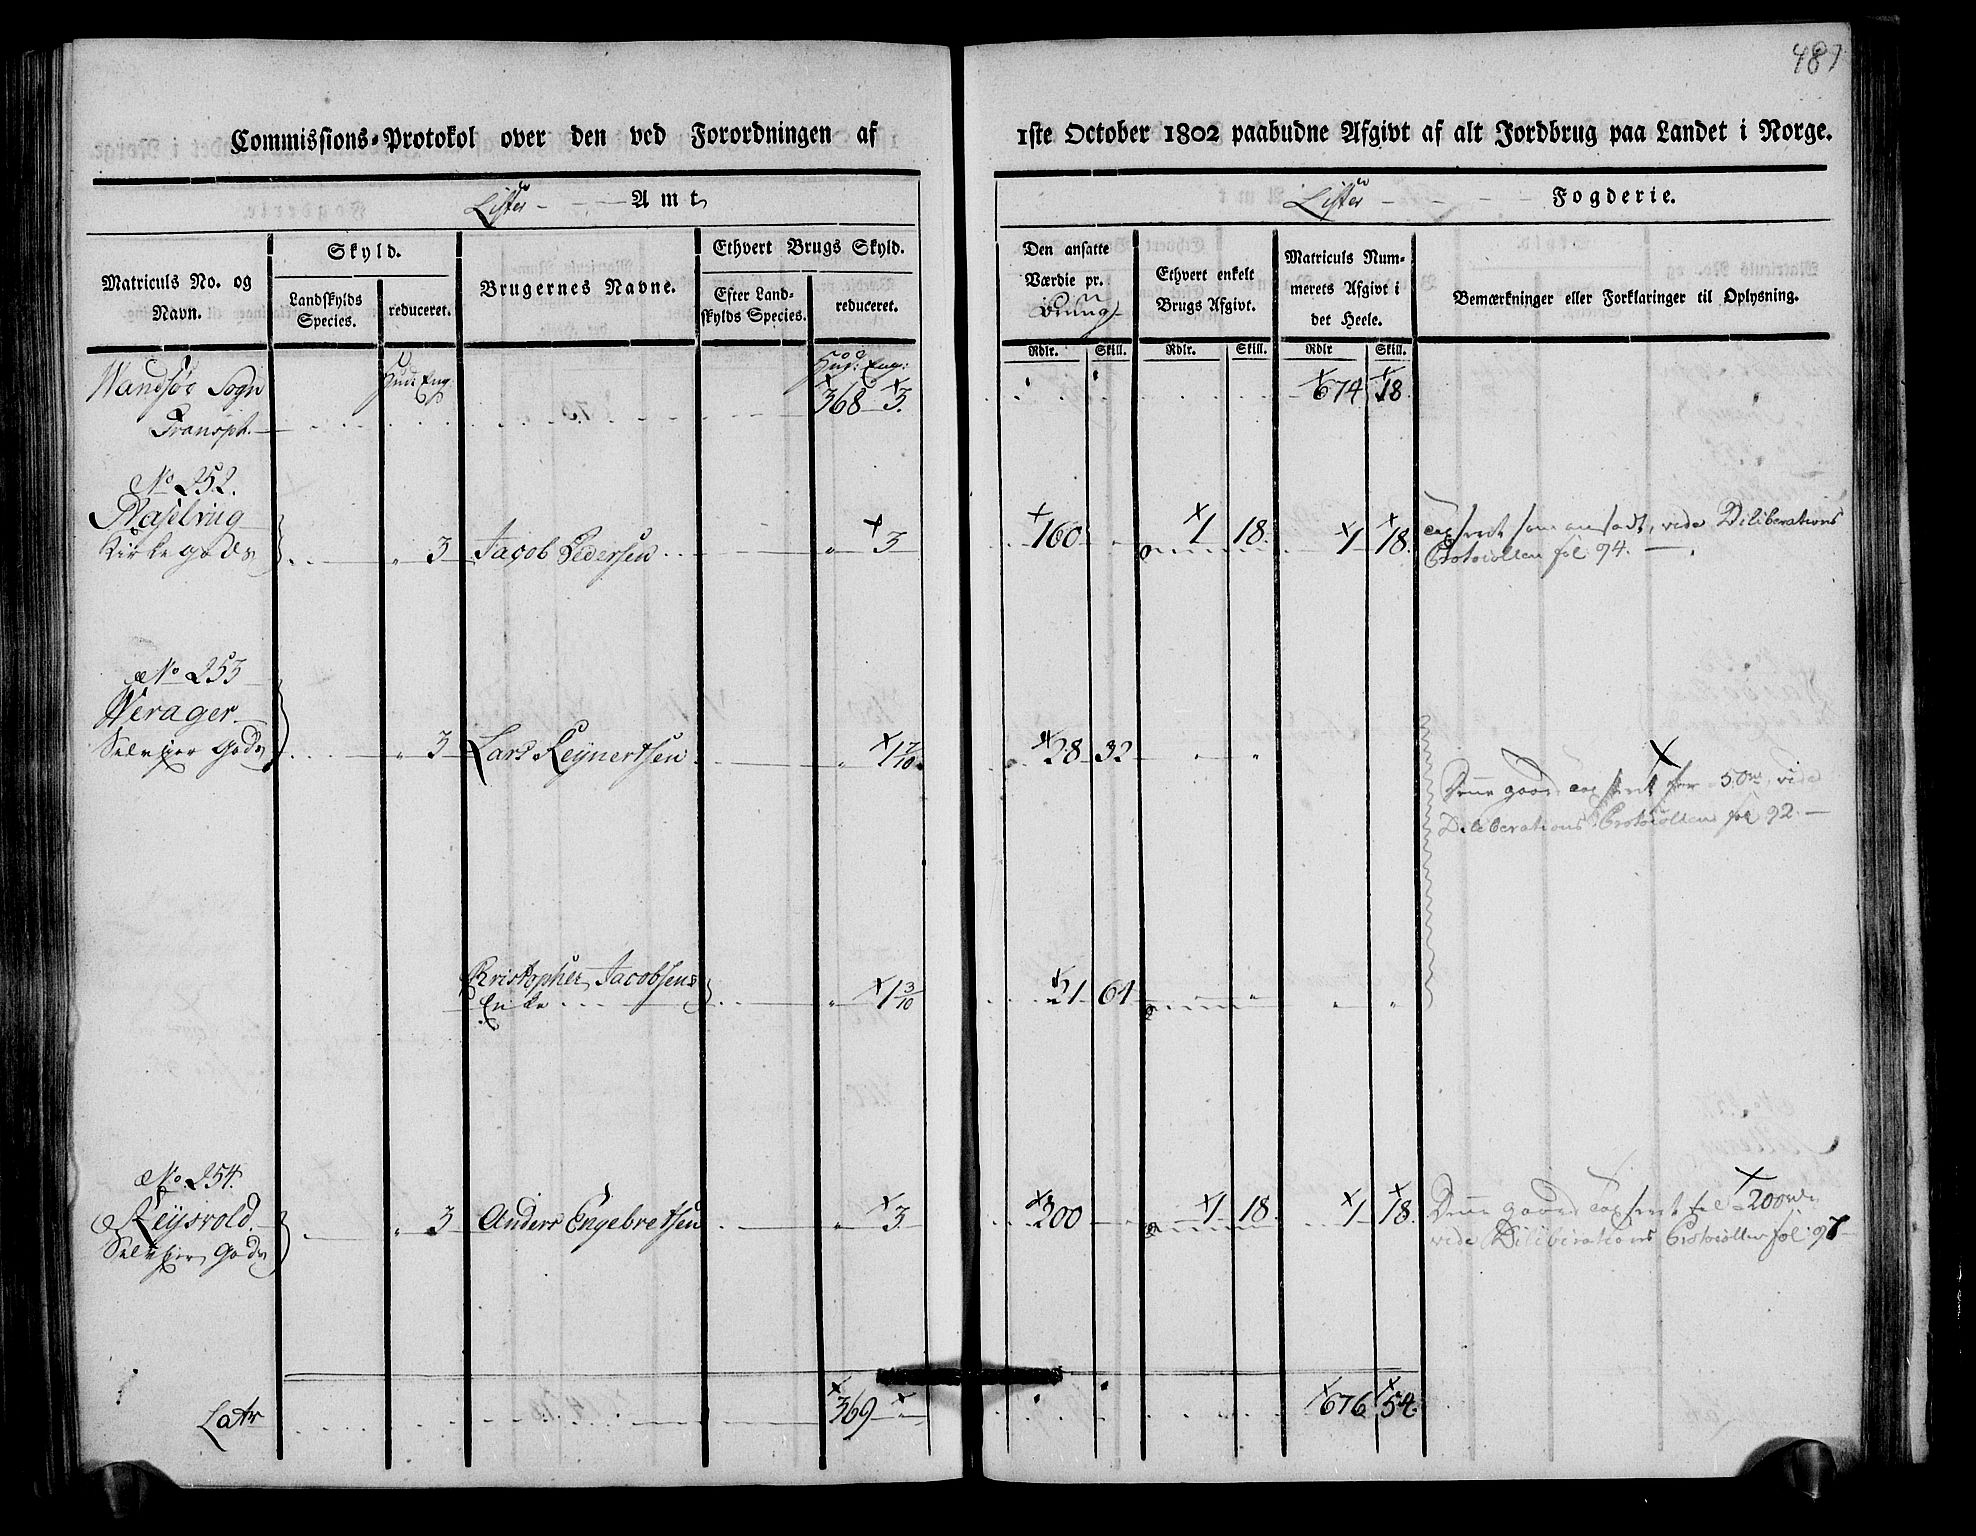 487
Commissions-Protokol over den ved Forordningen af 1ste October 1802 paabudne Afgivt af alt Jordbrug paa Landet i Norge.
Lister Amt
Lister Fogderie.
Matriculs No. og Navn.
Skyld.
Landskylds Species.
reduceret.
Brugernes Navne.
Ethvert Brugs Skyld.
Efter Landskylds Species.
reduceret.
Den ansatte Værdie pr.
Ethvert enkelt Brugs Afgivt.
Matriculs Nummerets Afgivt i det Heele.
Bemærkninger eller Forklaringer til Oplysning.
Rdlr. Skill. Rdlr. Skill. Rdlr Skill.
Sogn Hud: Eng: Hud: Eng:
Transpt. 368 3. 674 18
No 252.
Kirkegods 3 Jacob Pedersen 3 160 1 18. 1 18. som ansadt, vide Deliberations
Protocollen fol 94.
No 253
Werager
Selveyer Gods 3 Lars Reynertsen 1 7/10 28 32
Denne gaard for 50, vide
Deliberations Protocollen fol 92.
Kristopher Jacobsens
Enke 1 3/10 21 64
No. 254.
Reysvold.
Selveyer Gods 3 Anders Engebretsen 3 200 1 18. 1 18. Denne gaard til 200
vide Deliberations Protocollen fol: 97
Latr 369 676 54.